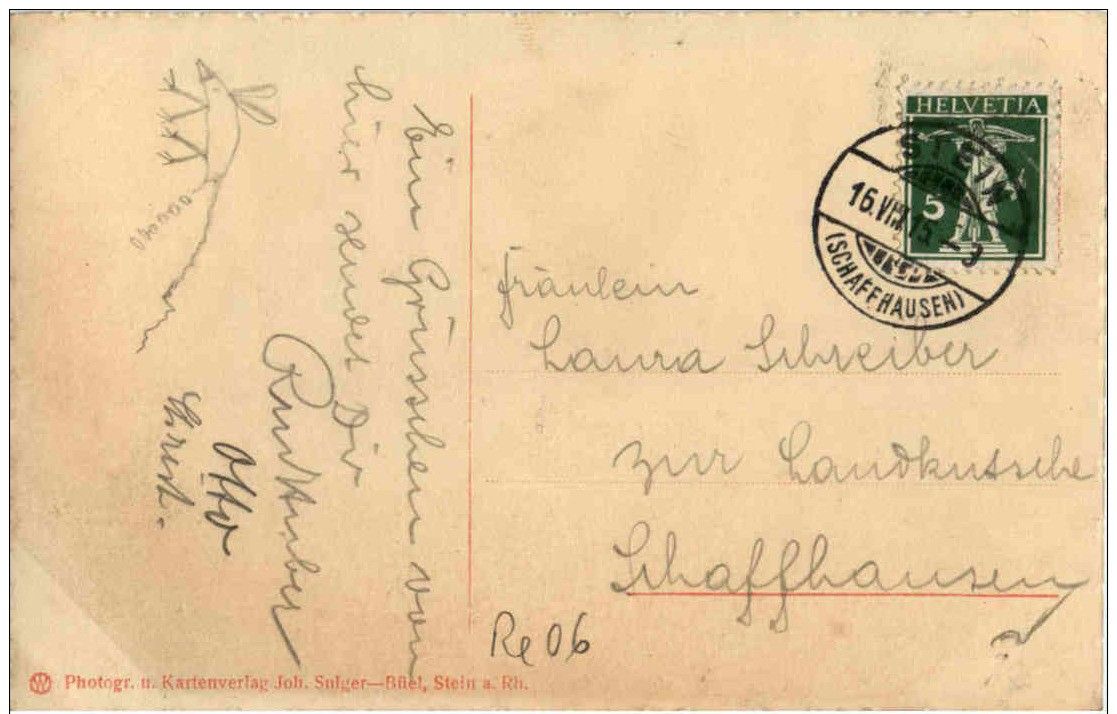 Ein Grüsschen von
hier sendet Dir
Otto
HELVETIA
5
STEIN
16.VIII.15.-9
(SCHAFFHAUSEN)
Fräulein
Laura Schreiber
zur Landkutsche
Schaffhausen
Re 06
Photogr. u. Kartenverlag Joh. Sulger—Büel, Stein a. Rh.